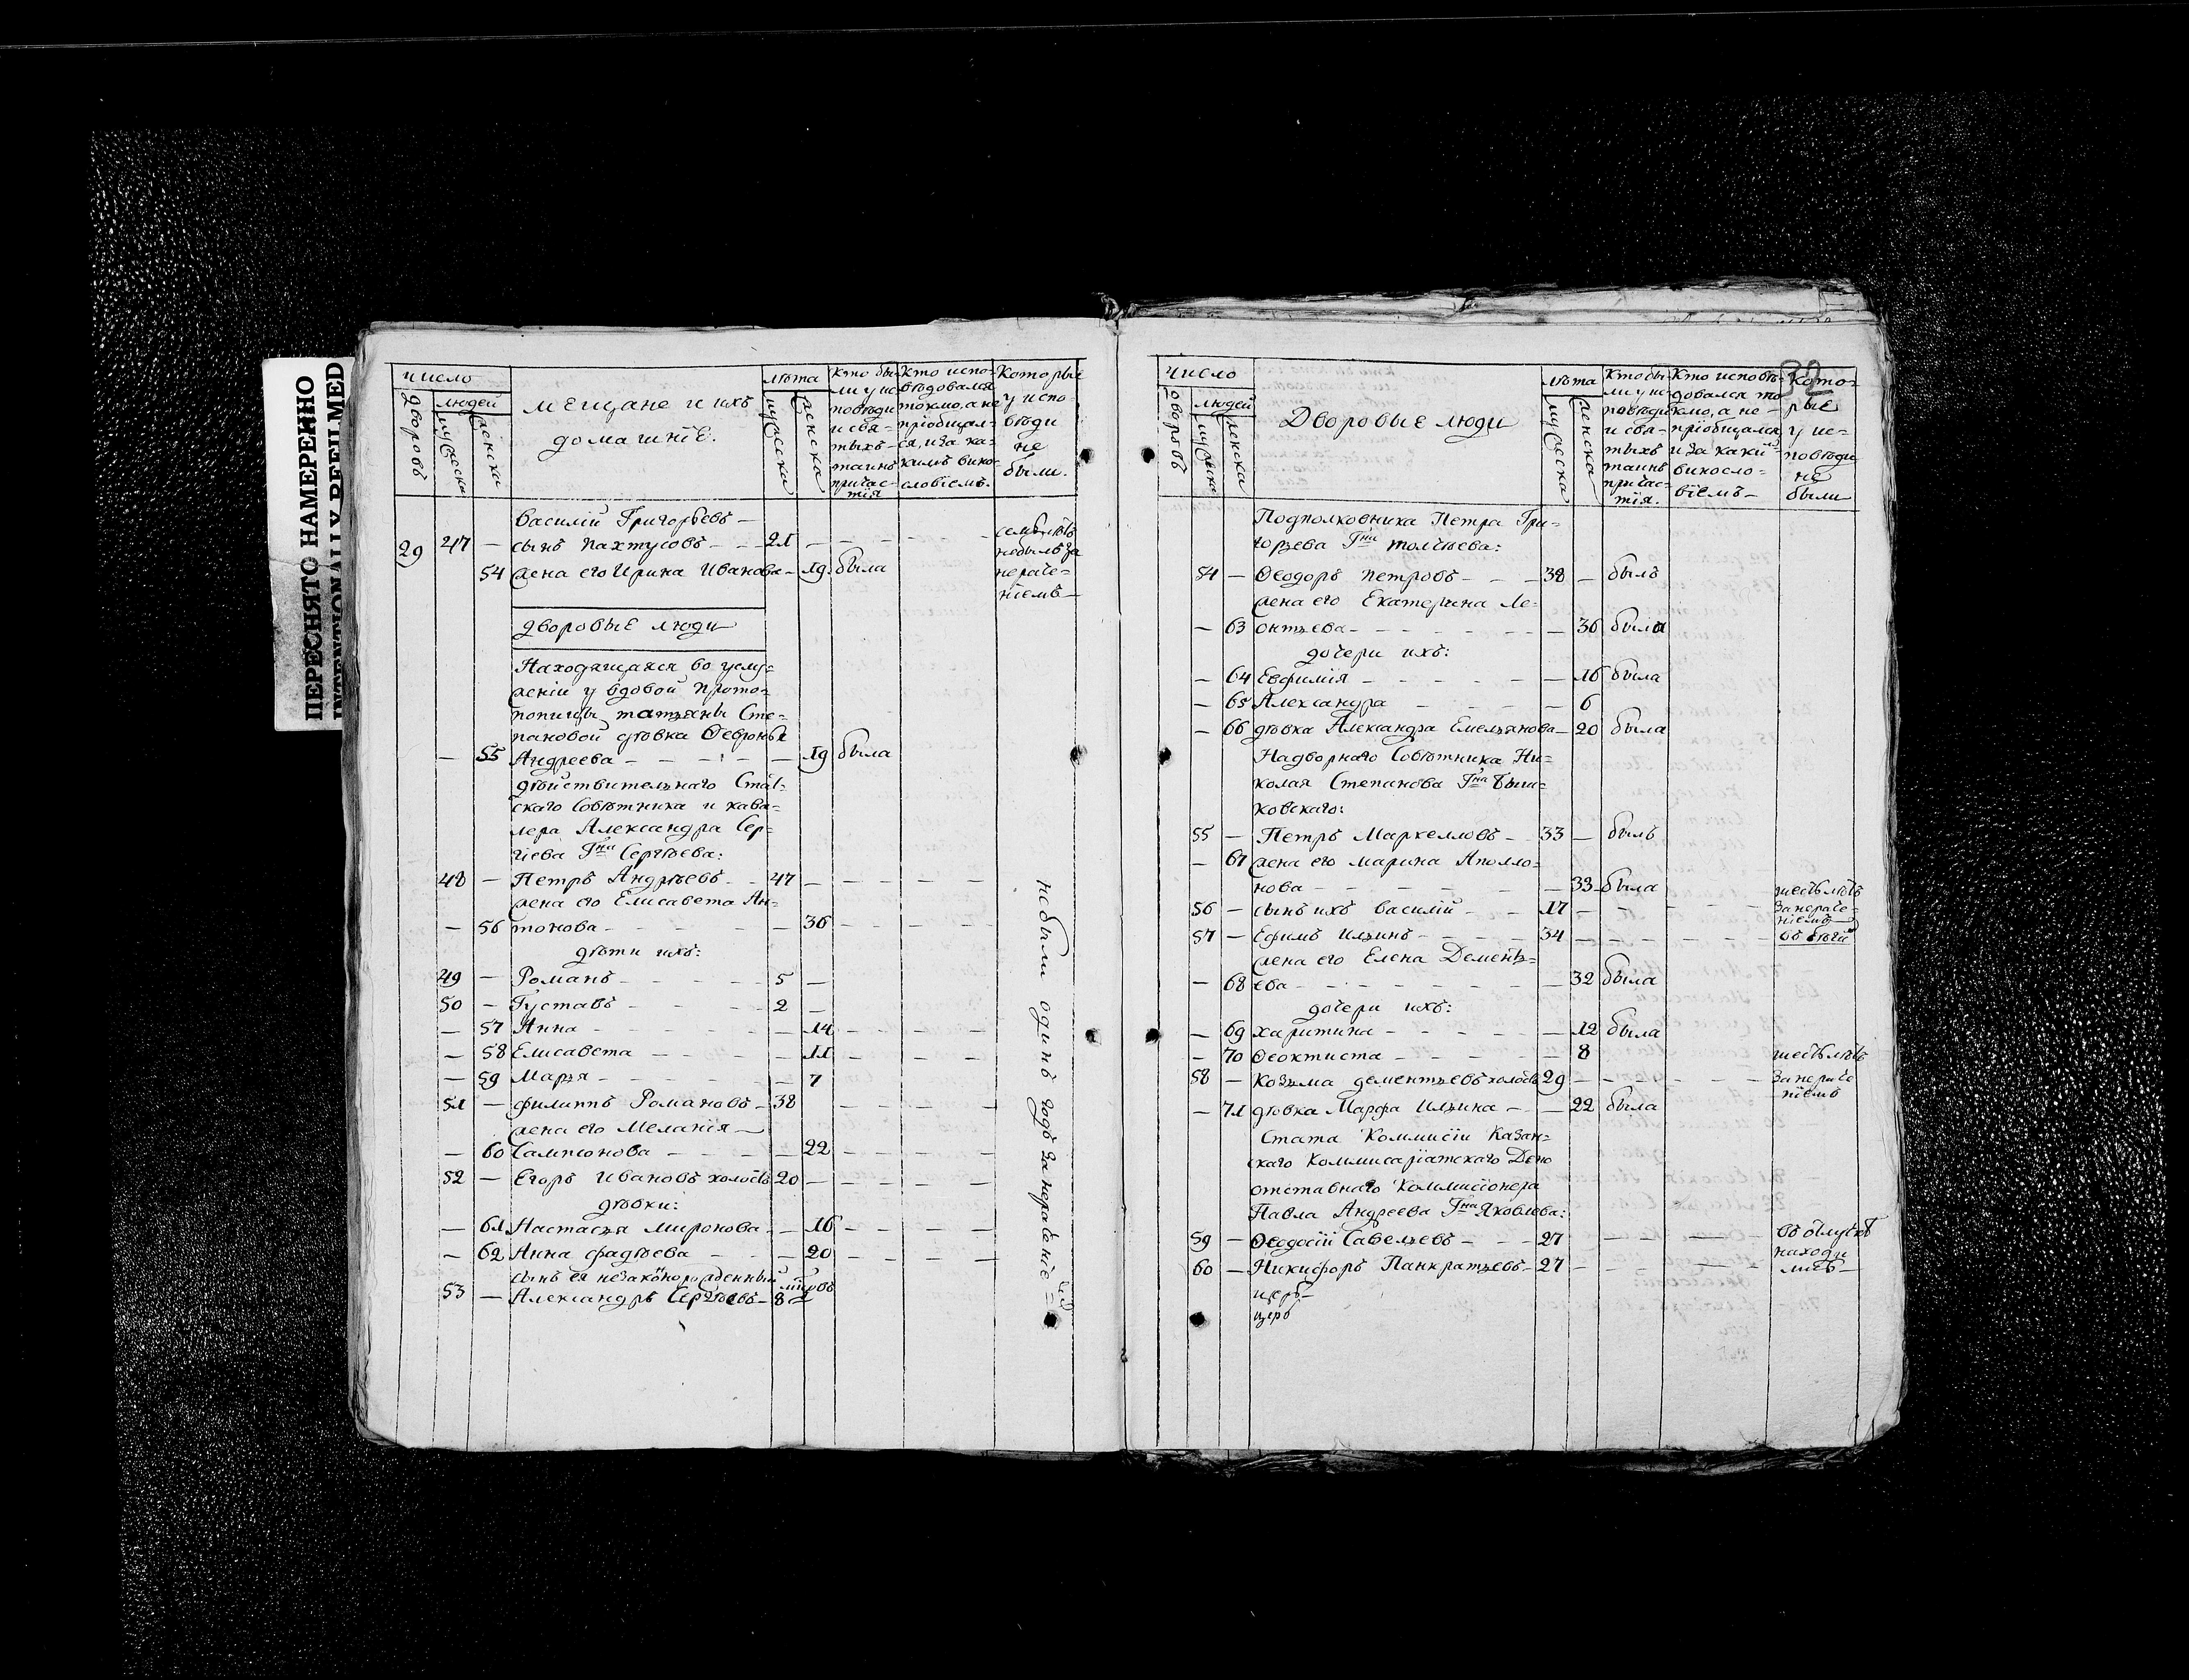 ПЕРЕСНЯТО НАМЕРЕННО
INTENTIONALLY REFILMED
число
дворовъ
людей
мужеска
женска
мещане и ихъ
домашніе.
лѣта
мужеска
женска
Кто бы-
ли у ис-
повѣди
и свя-
тыхъ
таинъ
причас-
тія
Кто испо-
вѣдовался
токмо, а не
пріобщал-
ся, и за ка-
кимъ вино-
словіемъ.
Которые
у испо-
вѣди
не
были.
Василій Григорьевъ —
29 47 — сынъ Пахтусовъ — 21 — — —
семь лѣтъ
небылъ за
нераче-
ніемъ —
54 жена его Ирина Иванова — 19. была
дворовые люди
Находящаяся во услу=
женіи у вдовой прото=
попицы татьяны Сте=
пановой дѣвка Ѳевронья
— 55 Андреева — — — 19 была
дѣйствительнаго Стат=
скаго Совѣтника и кава=
лера Александра Сер=
гіева Гна Сергѣева:
48 — Петръ Андрѣевъ — 47 — — — —
жена его Елисавета Ан=
— 56 тонова — — — 36 — — —
дѣти ихъ:
49 — Романъ — — — 5 —
50 — Густавъ — — — 2 —
— 57 Анна — — — 14 — — —
— 58 Елисавета — — — 11 — — —
— 59 Марья — — — 7
51 — филиппъ Романовъ — 38 — — —
жена его Меланія —
— 60 Сампсонова — — 22 — — —
52 — Егоръ Ивановъ холостъ 20 — — — —
дѣвки:
— 61 Настасья миронова — — 16 — — —
— 62 Анна фадѣева — — — 20 — — —
сынъ ея незаконорожденный
53 — Александръ Сергѣевъ — 8
небыли одинъ годъ за нераченіе=
Число
дворовъ
людей
мужеска
женска
Дворовые люди
лѣта
мужеска
женска
Кто бы-
ли у ис-
повѣди
и свя-
тыхъ
таинъ
причас-
тія.
Кто исповѣ-
довался то
кмо, а не —
пріобщался
и за какимъ
виносло-
віемъ —
Кото-
рые
у ис=
повѣди
не
были
32
Подполковника Петра Гри=
горьева Гна толстьева:
54 — Ѳеодоръ петровъ — — — 38 — былъ
жена его Екатерина Ле=
— 63 онтьева — — — — 36 была
дочери ихъ:
— 64 Евфимія — — — — 16 была
— 65 Александра — — — 6
— 66 дѣвка Александра Емельянова — 20 была
Надворнаго Совѣтника Ни=
колая Степанова Гна Выш=
ковскаго:
55 — Петръ Маркелловъ — 33 — былъ
— 67 жена его марина Аполло=
нова — — — — 33 — была
56 — сынъ ихъ василій — — 17 — — — —
шесть лѣтъ
за нераче-
ніемъ —
57 — Ефимъ Ильинъ — — — 34 — — — — въ бѣгѣ
жена его Елена Дементь=
— 68 ева — — — — 32 была
дочери ихъ:
— 69 харитина — — — — 12 была
— 70 Ѳеоктиста — — — — 8
58 — Козьма дементьевъ холостъ 29 — — — —
шесть лѣтъ
за нераче
ніемъ
— 71 дѣвка Марфа Ильина — — 22 была
Стата Коммисіи Казан=
скаго Коммисаріатскаго Депо
отставнаго Коммисіонера
Павла Андреева Гна Яковлева:
59 — Ѳеодосій Савельевъ — — — 27 — — —
60 — Никифоръ Панкратьевъ — 27 — — —
въ отлучкѣ
находи
лись —
церь —
церь